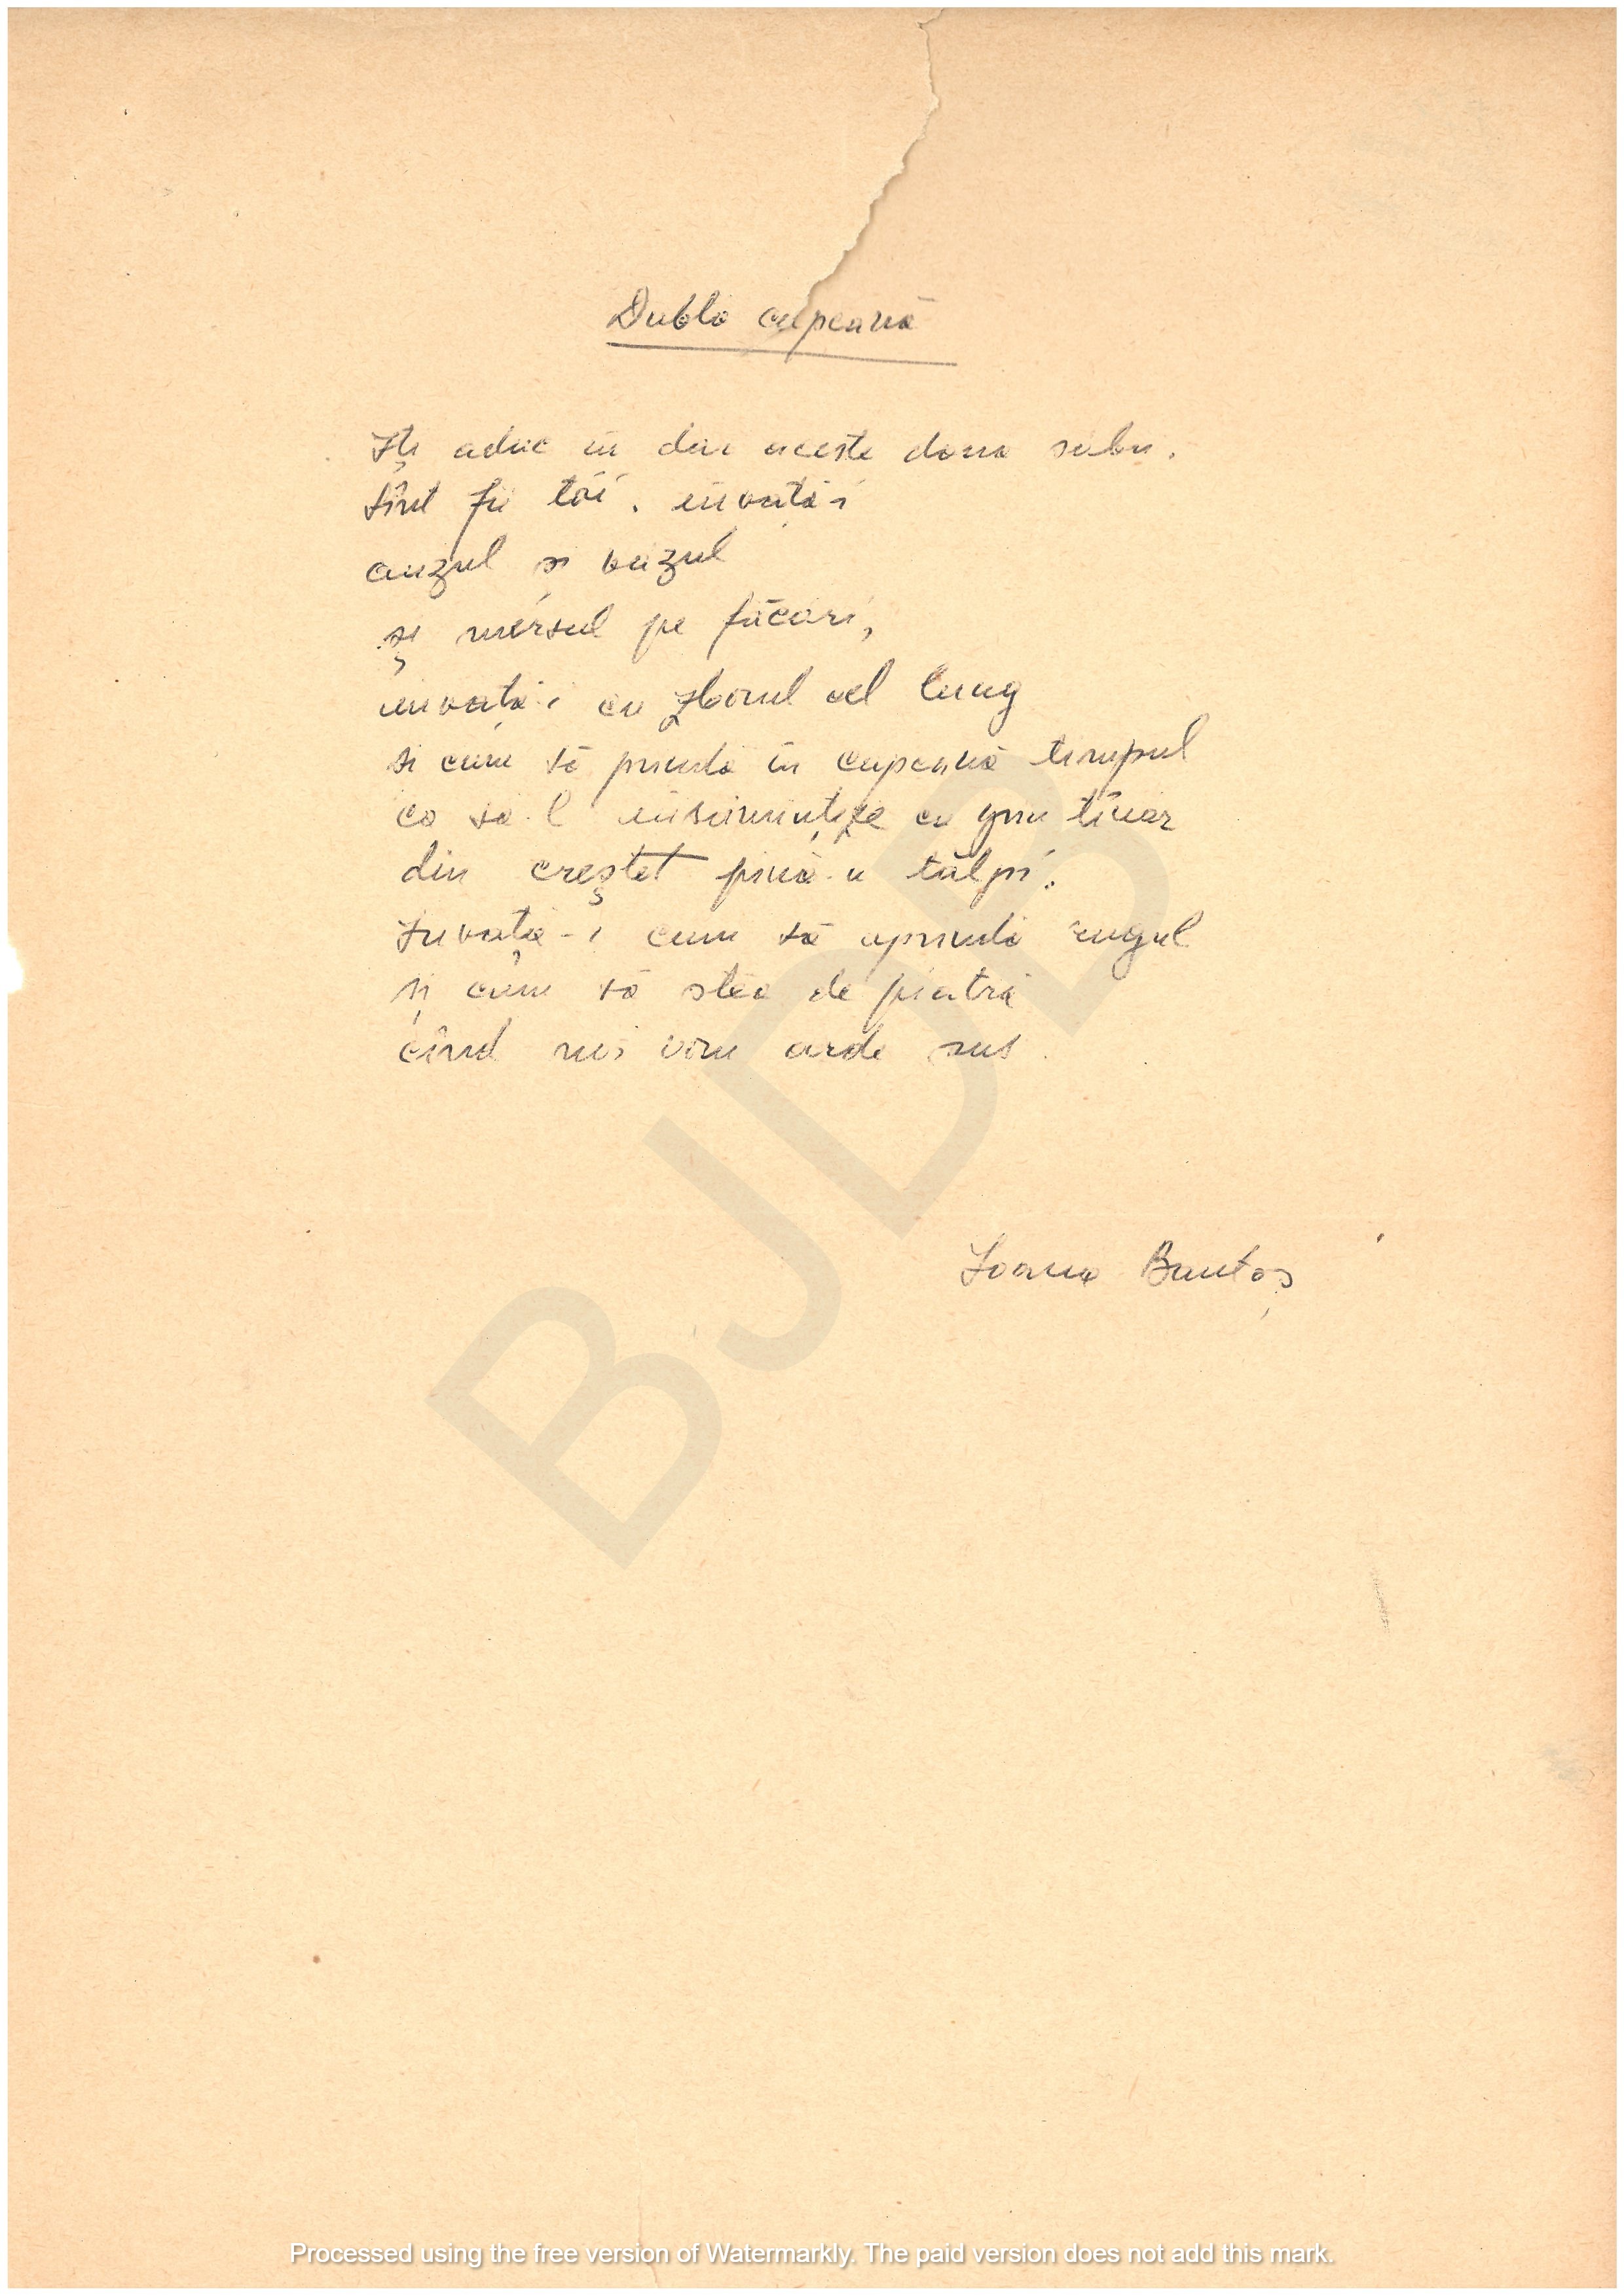 Dubla capcană
Iți aduc în dar aceste două săbii.
Sînt fii tăi. învață-i
auzul și văzul
și mersul pe flăcări,
învață-i cu zborul cel lung
și cum să prindă în capcană timpul
ca să-l însămințeze cu grîu tînăr
din creștet pînă-n tălpi.
Învață-i cum să aprindă rugul
și cum să stea de piatră
cînd noi vom arde sus.
Ioana Bantaș
BJDB
Processed using the free version of Watermarkly. The paid version does not add this mark.